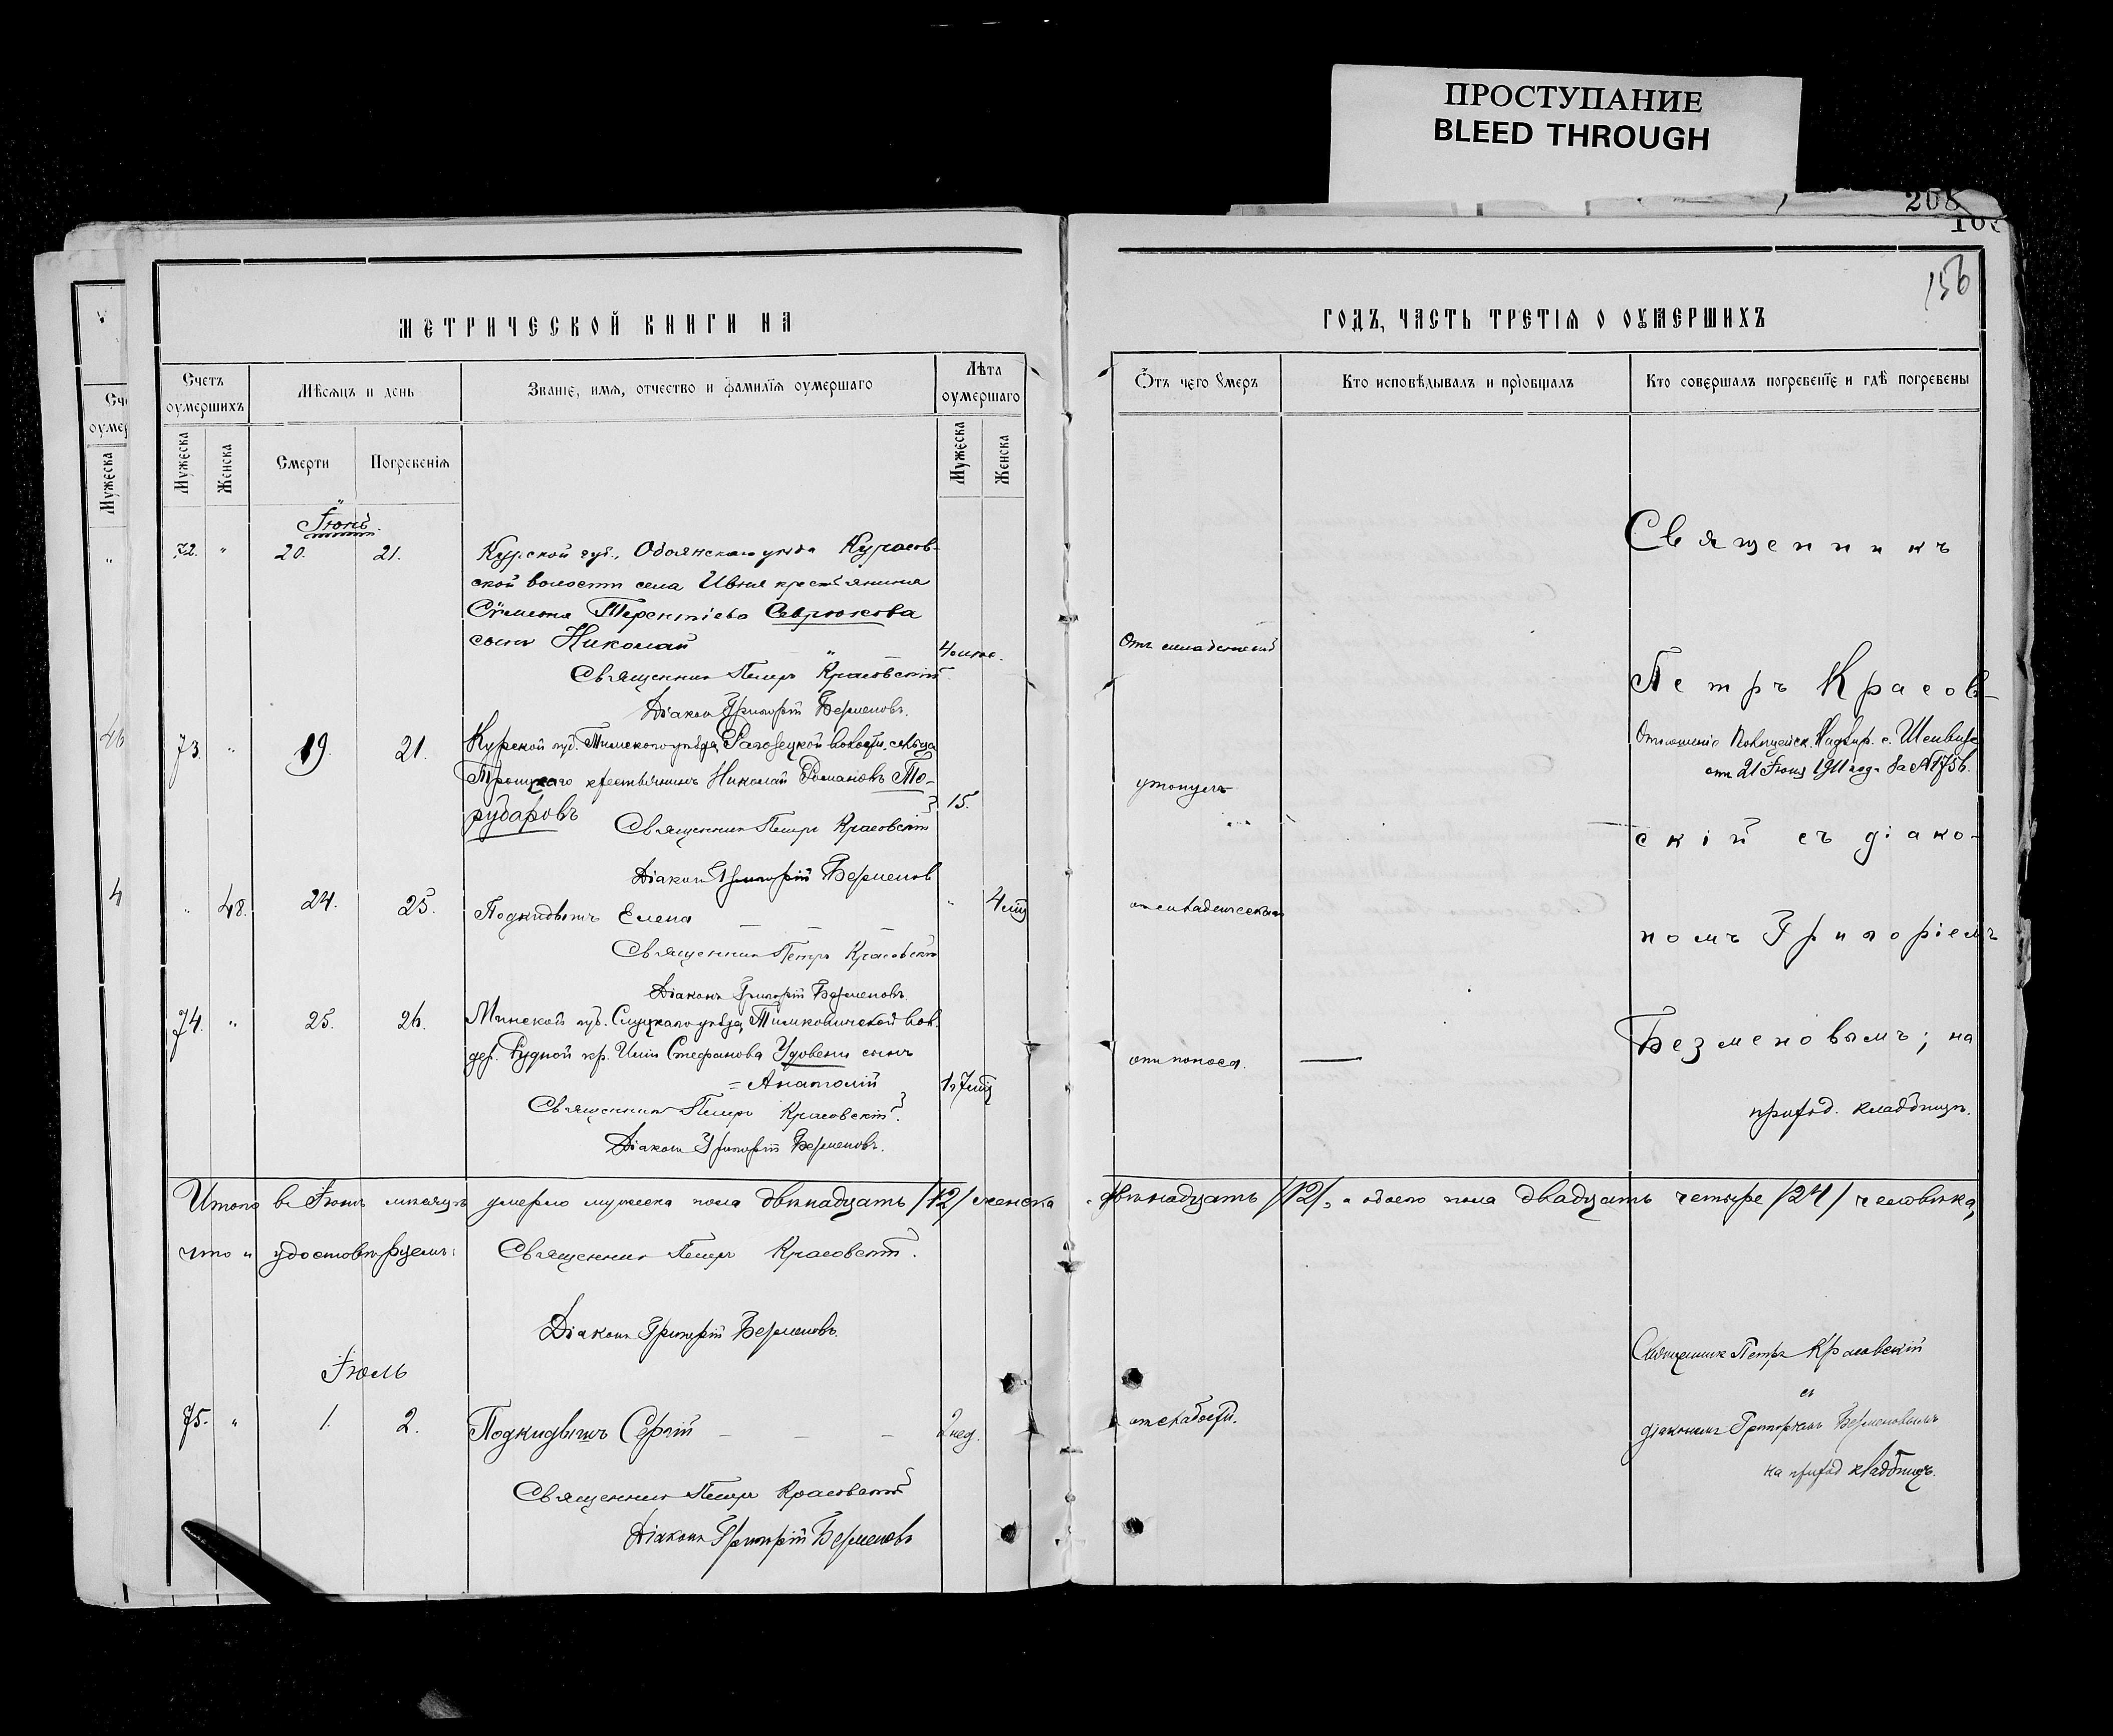 ПРОСТУПАНИЕ
BLEED THROUGH
208
156
МЕТРИЧЕСКОЙ КНИГИ НА
ГОДЪ, ЧАСТЬ ТРЕТІЯ О ОУМЕРШИХЪ
Счетъ оумершихъ
Мѣсяцъ и день
Званіе, имя, отчество и фамилія оумершаго
Лѣта оумершаго
Отъ чего умеръ
Кто исповѣдывалъ и пріобщалъ
Кто совершалъ погребеніе и гдѣ погребены
Мужеска
Женска
Смерти
Погребенія
Мужеска
Женска
Іюнь.
72. " 20. 21. Курской губ., Обоянскаго уѣзда Курасов-
ской волости села Ивня крестьянина
Сѵмеона Терентіева Севрюкова
сынъ Николай
Отъ младенческой
Священникъ Петръ Красовскій
Діаконъ Григорій Безменовъ.
73. " 19. 21. Курской губ. Тимскаго уѣзда, волости, сельца
Троицкаго крестьянинъ Николай Романовъ То-
рубаровъ 15. утонулъ
Священникъ Петръ Красовскій
Діаконъ Григорій Безменовъ
" 48. 24. 25. Подкидышъ Елена " 4 мѣс
Священникъ Петръ Красовскій
Діаконъ Григорій Безменовъ.
74. " 25. 26. Минской губ. Слуцкаго уѣзда, Тимковичской вол.
дер. Рудной кр. Стефанова Удовени сынъ
= Анатолій
отъ поноса.
Священникъ Петръ Красовскій.
Діаконъ Григорій Безменовъ.
Священникъ
Петръ Красов-
Отношеніе
отъ 21 Іюня 1911 года за №
скій съ діако-
номъ Григоріемъ
Безменовымъ; на
приход. кладбищѣ.
Итого въ Іюнѣ мѣсяцѣ умерло мужеска пола двѣнадцать /12/ женска двѣнадцать /12/, а обоего пола двадцать четыре /24/ человѣка,
что и удостовѣряемъ: Священникъ Петръ Красовскій.
Діаконъ Григорій Безменовъ.
Іюль
75. " 1. 2. Подкидышъ Сергій 2 нед. отъ слабости.
Священникъ Петръ Красовскій
Діаконъ Григорій Безменовъ
Священникъ Петръ Красовскій
съ
діакономъ Григоріемъ Безменовымъ
на приход кладбищѣ.